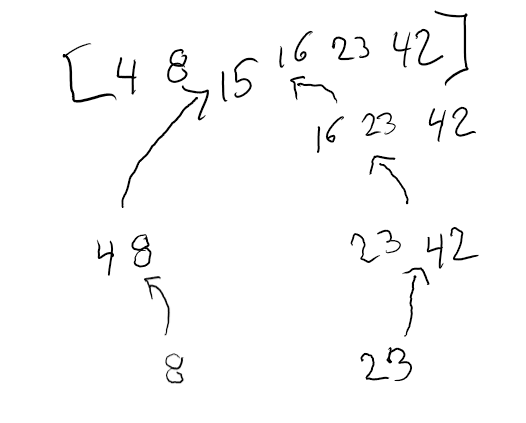 [4 8 15 16 23 42]
16 23 42
4 8 23 42
8 23